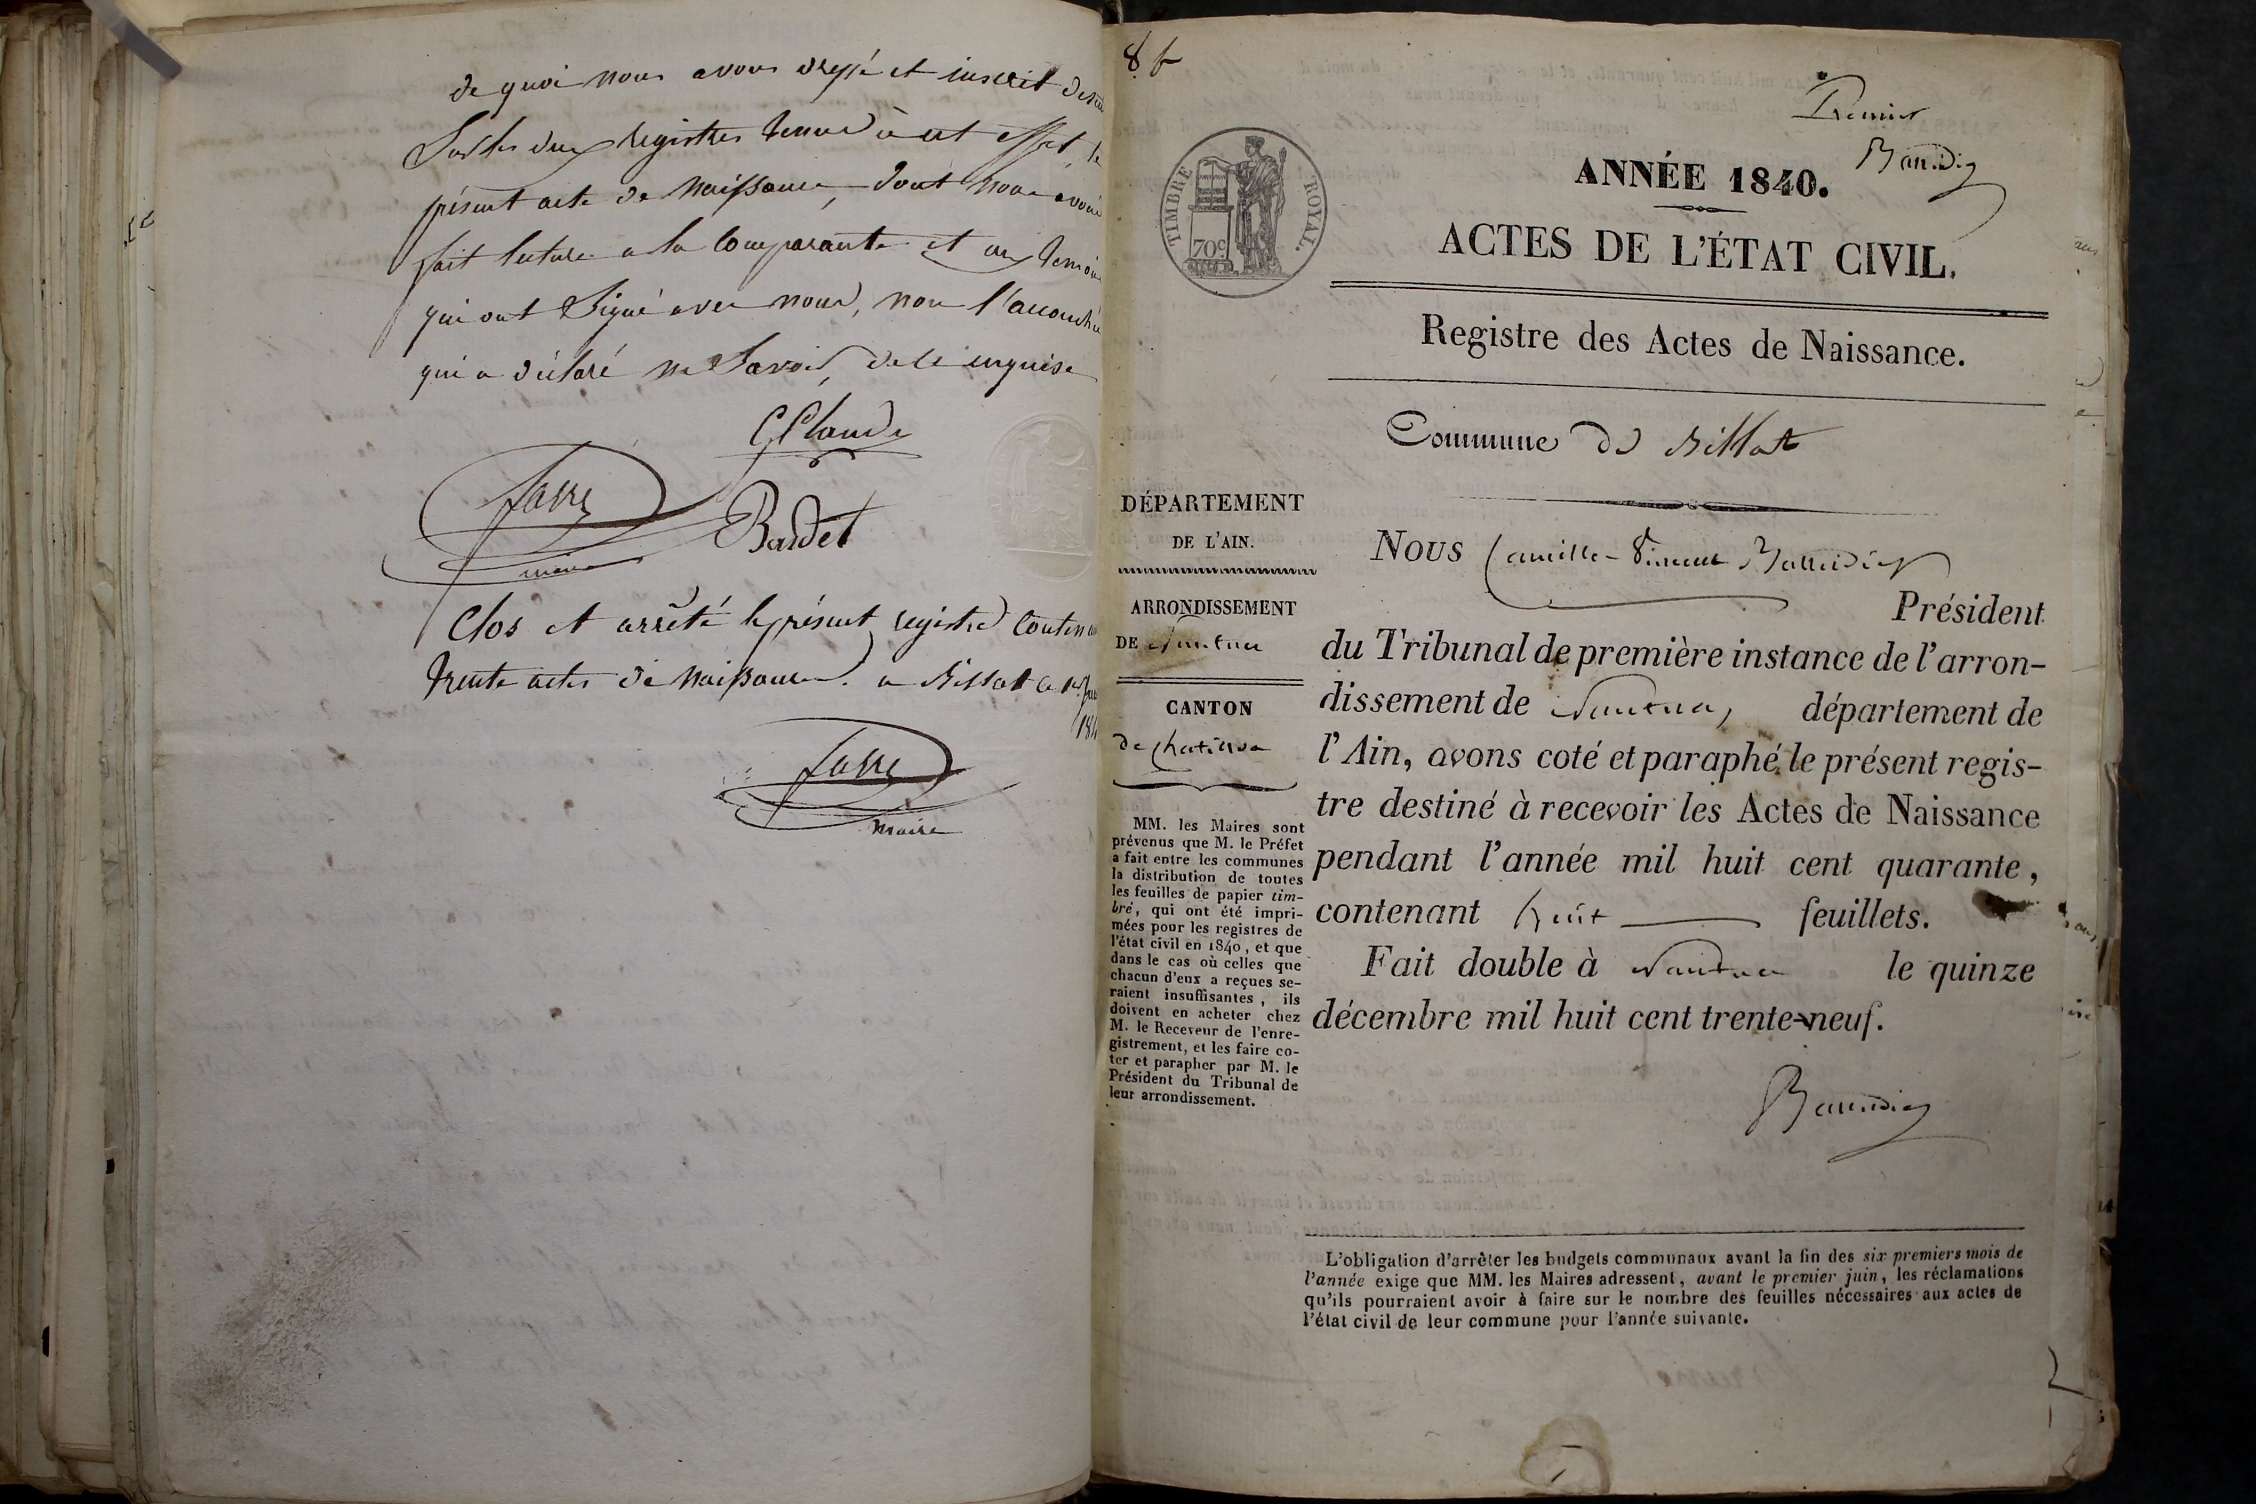 de quoi nous avons dressé et inscrit de suite
Sur les deux registres tenus à cet effet, le
présent acte de Naissance, dont nous avons
fait lecture a la Comparante et aux témoins
qui ont Signé avec nous, non l'accouchée
qui a déclaré ne Savoir, de ce enquise
C Claude
favre
maire
Bardet
Clos et arrêté le présent registre Contenant
trente actes de Naissance. a Billiat le 1er
favre
maire
8 f
Premier
TIMBRE ROYAL.
70c
ANNÉE 1840.
ACTES DE L'ÉTAT CIVIL.
Registre des Actes de Naissance.
Commune de Billiat
DÉPARTEMENT
DE L'AIN.
ARRONDISSEMENT
DE Nantua
CANTON
de Chatillon
MM. les Maires sont
prévenus que M. le Préfet
a fait entre les communes
la distribution de toutes
les feuilles de papier tim-
bré, qui ont été impri-
mées pour les registres de
l'état civil en 1840, et que
dans le cas où celles que
chacun d'eux a reçues se-
raient insuffisantes, ils
doivent en acheter chez
M. le Receveur de l'enre-
gistrement, et les faire co-
ter et parapher par M. le
Président du Tribunal de
leur arrondissement.
Nous Camille-Vincent
Président
du Tribunal de première instance de l'arron-
dissement de Nantua, département de
l'Ain, avons coté et paraphé le présent regis-
tre destiné à recevoir les Actes de Naissance
pendant l'année mil huit cent quarante,
contenant huit feuillets.
Fait double à Nantua le quinze
décembre mil huit cent trente-neuf.
L'obligation d'arrêter les budgets communaux avant la fin des six premiers mois de
l'année exige que MM. les Maires adressent, avant le premier juin, les réclamations
qu'ils pourraient avoir à faire sur le nombre des feuilles nécessaires aux actes de
l'état civil de leur commune pour l'année suivante.